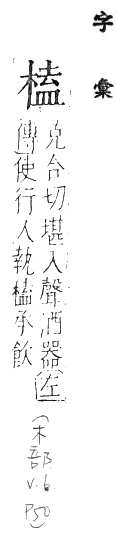 字彙
榼
克合切堪入聲酒器(左
傳使行人執榼承飲
(木部 v.6 P50)